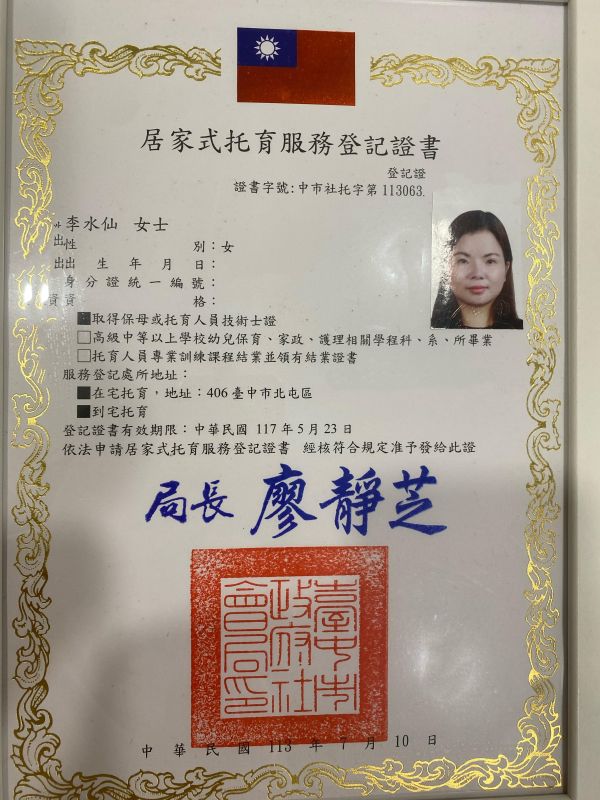 居家式托育服務登記證書
登記證
證書字號:中市社托字第 113063.
李水仙 女士
性 別:女
出 生 年 月 日:
身分證統一編號:
資 格:
■取得保母或托育人員技術士證
□高級中等以上學校幼兒保育、家政、護理相關學程科、系、所畢業
□托育人員專業訓練課程結業並領有結業證書
服務登記處所地址:
■在宅托育,地址:406 臺中市北屯區
■到宅托育
登記證書有效期限:中華民國 117 年 5 月 23 日
依法申請居家式托育服務登記證書 經核符合規定准予發給此證
局長 廖靜芝
臺中市政府社會局印
中 華 民 國 113 年 7 月 10 日